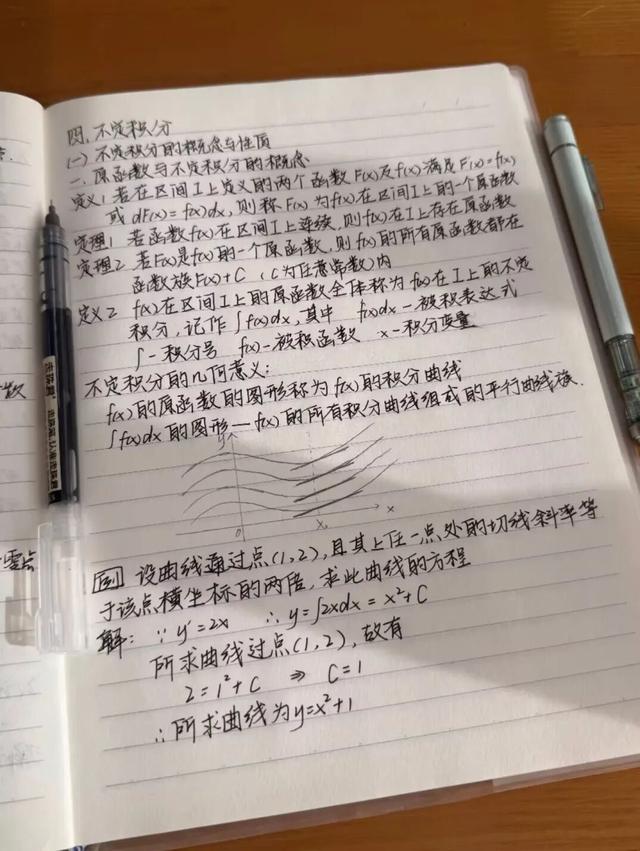 四、不定积分
(一) 不定积分的概念与性质
一、原函数与不定积分的概念
定义1 若在区间I上定义的两个函数F(x)及f(x)满足F'(x)=f(x)
或 dF(x)=f(x)dx, 则称F(x)为f(x)在区间I上的一个原函数
定理1 若函数f(x)在区间I上连续, 则f(x)在I上存在原函数
定理2 若F(x)是f(x)的一个原函数, 则f(x)的所有原函数都在
函数族F(x)+C (C为任意常数)内
定义2 f(x)在区间I上的原函数全体称为f(x)在I上的不定
积分, 记作∫f(x)dx, 其中 f(x)dx—被积表达式
∫—积分号 f(x)—被积函数 x—积分变量
不定积分的几何意义:
f(x)的原函数的图形称为f(x)的积分曲线
∫f(x)dx的图形—f(x)的所有积分曲线组成的平行曲线族.
y
0 x₀ x
例 设曲线通过点(1,2), 且其上任一点处的切线斜率等
于该点横坐标的两倍, 求此曲线的方程
解: ∵ y'=2x ∴ y=∫2xdx=x²+C
所求曲线过点(1,2), 故有
2=1²+C ⇒ C=1
∴所求曲线为y=x²+1
数
零点